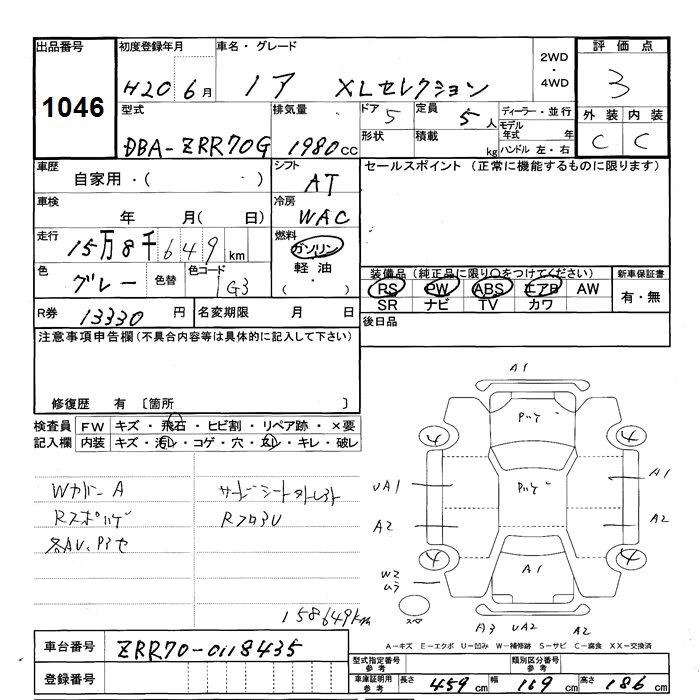 出品番号
1046
初度登録年月
H20 6月
車名・グレード
ノア XLセレクション
2WD
・
4WD
評価点
3
外装 内装
C C
型式
DBA-ZRR70G
排気量
1980cc
ドア
5
定員
5人
形状
積載
kg
ディーラー・並行
モデル年式 年
ハンドル 左・右
車歴
自家用・( )
シフト
AT
セールスポイント (正常に機能するものに限ります)
車検
年 月( 日)
冷房
WAC
走行
15万8千649km
燃料
ガソリン
軽油
( ・ )
色
グレー
色替
色コード
G3
装備品(純正品に限り○をつけてください)
RS PW ABS エアB AW
SR ナビ TV カワ
新車保証書
有・無
R券 13330円
名変期限 月 日
後日品
注意事項申告欄(不具合内容等は具体的に記入して下さい)
修復歴 有 〔箇所 〕
検査員
記入欄
FW キズ・飛石・ヒビ割・リペア跡・×要
内装 キズ・汚レ・コゲ・穴・スレ・キレ・破レ
WカバーA
各AU、Pヨセ
158649km
A1
4
4
UA1
A1
A2
A2
4
4
W2
ムラ
A1
A3 UA2 A2
A-キズ E-エクボ U-凹み W-補修跡 S-サビ C-腐食 XX-交換済
車台番号 ZRR70-0118435
登録番号
型式指定番号
参考
類別区分番号
参考
車庫証明用
参考
長さ 459cm 幅 169cm 高さ 186cm